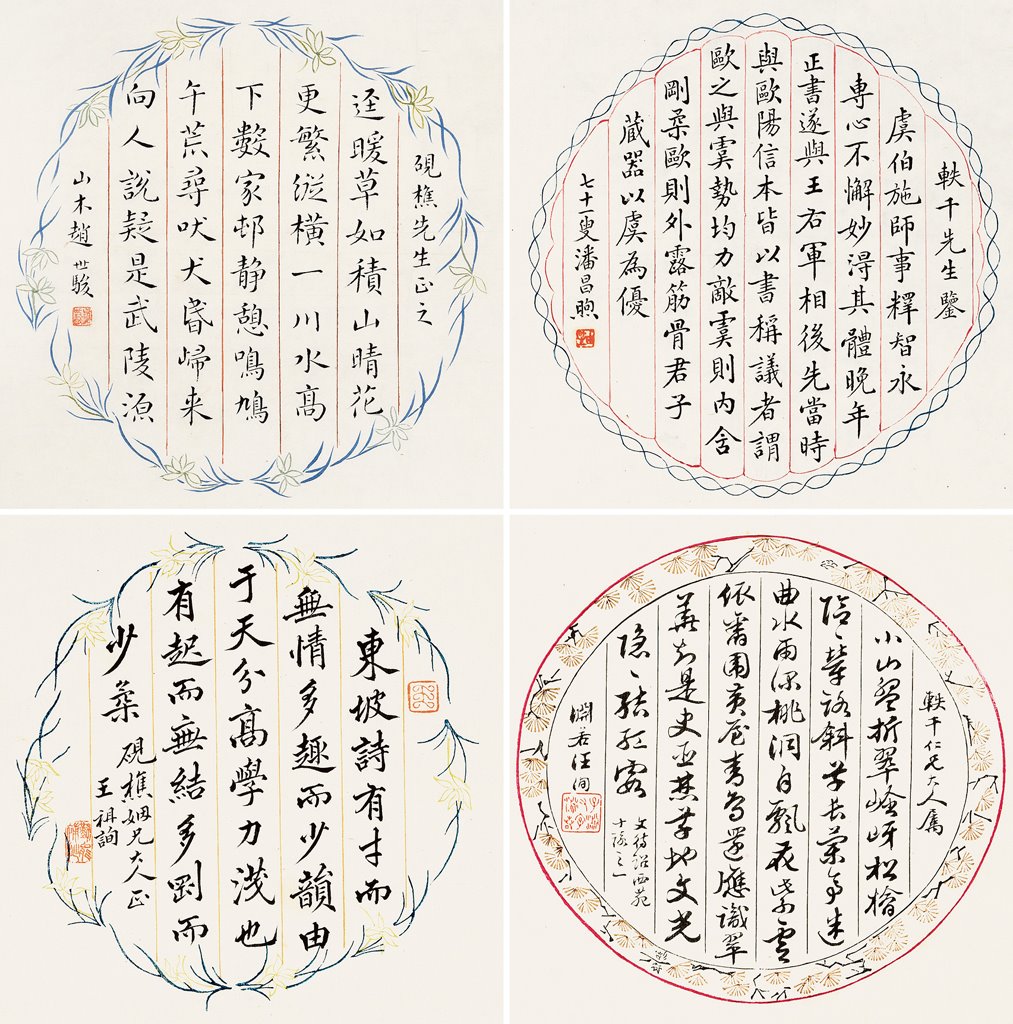 硯樵先生正之
逕暖草如積山晴花
更繁縱橫一川水高
下數家邨静憩鳴鳩
午荒尋吠犬昏歸来
向人說疑是武陵源
山木趙世駿
軼千先生鑒
虞伯施師事釋智永
專心不懈妙得其體晚年
正書遂與王右軍相後先當時
與歐陽信本皆以書稱議者謂
歐之與虞勢均力敵虞則内含
剛柔歐則外露筋骨君子
藏器以虞為優
七十一叟潘昌煦
東坡詩有才而
無情多趣而少韻由
于天分高學力淺也
有起而無結多剛而
少柔
硯樵姻兄大人正
王祖詢
軼千仁兄大人屬
小山盤折翠峰岈松檜
陰陰輦路斜草長蘭亭迷
曲水雨深桃洞自飄花紫雲
依舊圍黃屋青鳥還應識翠
華知是史臣焚草地文光
隱隱結紅霞
文待詔西苑
十詠之一
淵若汪洵